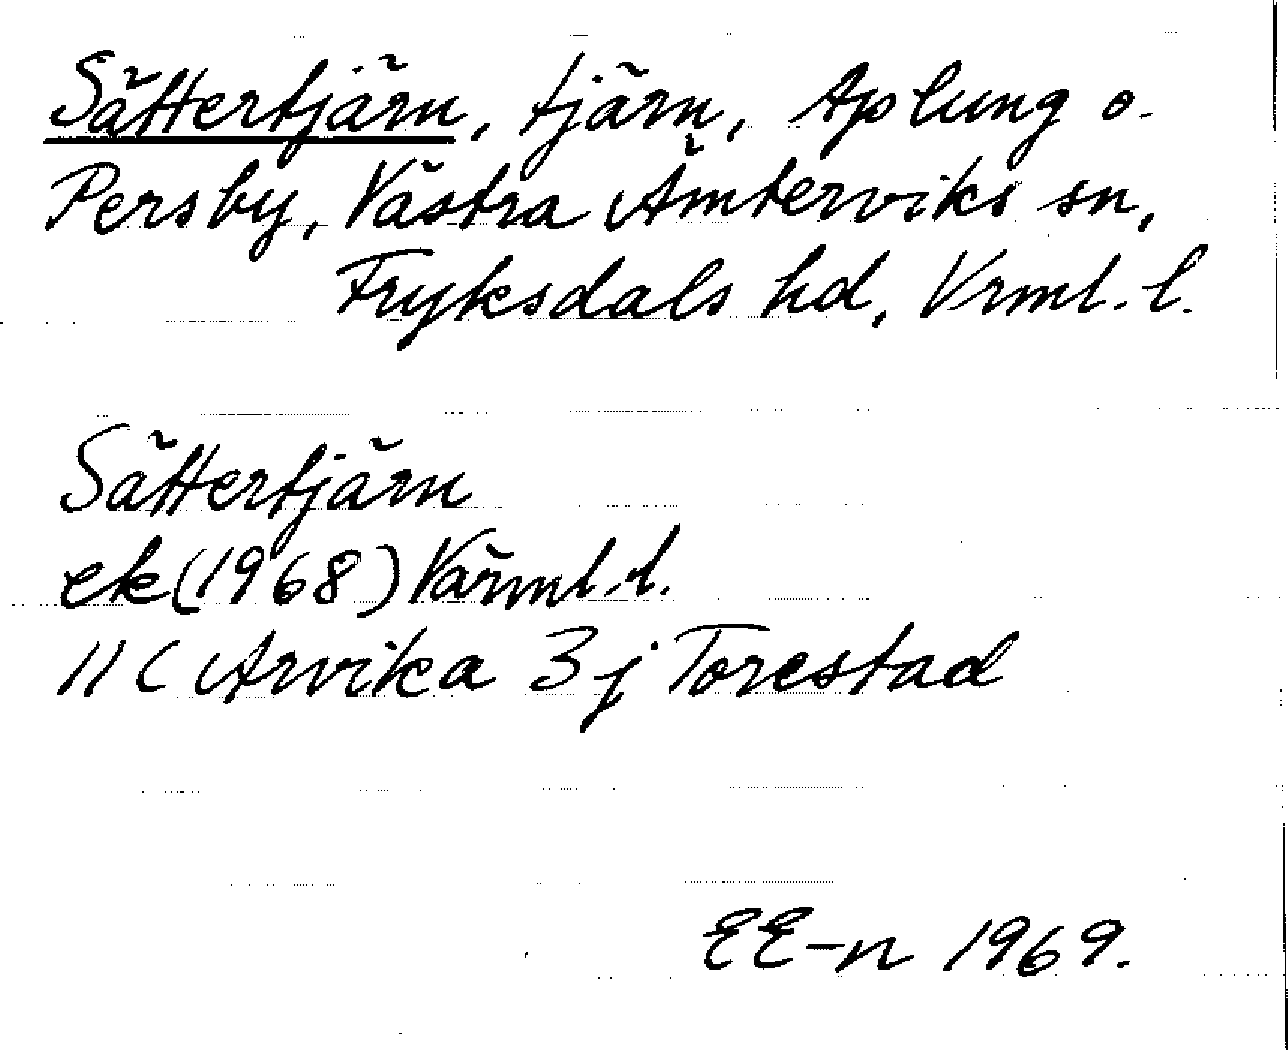 Sättertjärn, tjärn, Aplung o.
Persby, Västra Ämterviks sn,
Fryksdals hd, Vrml. l.
Sättertjärn
ek (1968) Värml. l.
11 C Arvika 3 j Torestad
EE-n 1969.